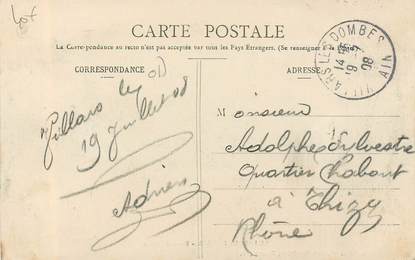 CARTE POSTALE
La Correspondance au recto n'est pas acceptée par tous les Pays Étrangers. (Se renseigner à la Poste)
CORRESPONDANCE
ADRESSE
VILLARS LES DOMBES
19 -7
08
AIN
Villars les
19 Juillet 08
Adrien
Monsieur
Adolphe Sylvestre
Quartier Chabout
à Thizy
Rhône